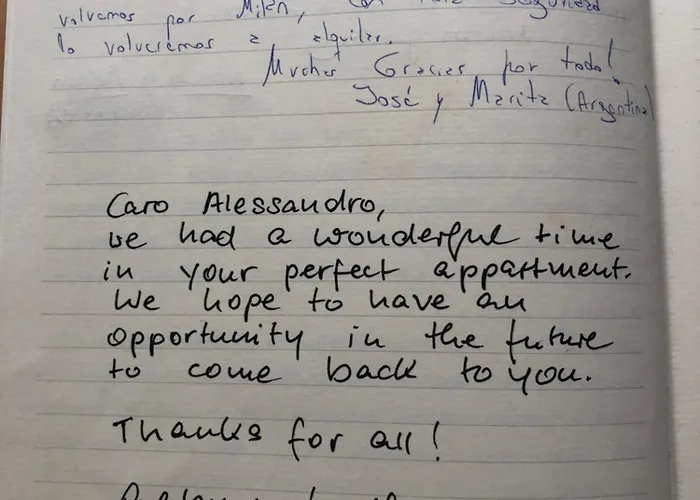 volvemos por Milán, con
lo volveremos a alquilar.
Muchas Gracias por todo!
José y Marita (Argentina)
Caro Alessandro,
we had a wonderful time
in your perfect appartment.
We hope to have an
opportunity in the future
to come back to you.
Thanks for all!